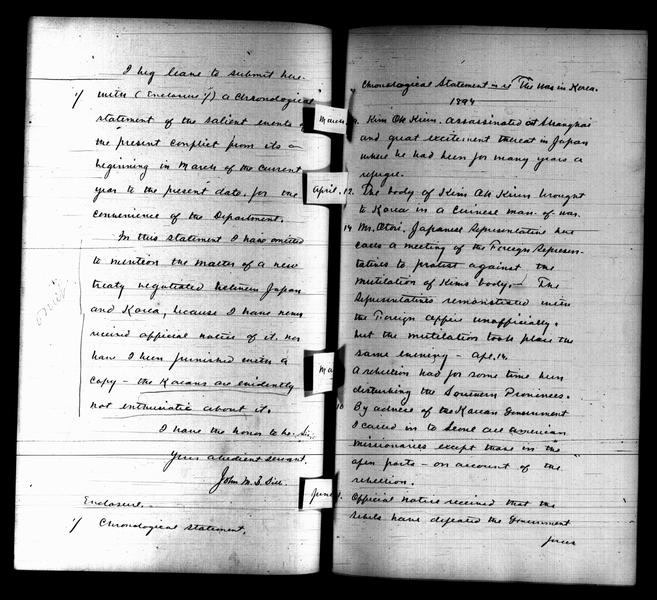 I beg leave to submit here-
1/ with (Enclosure 1/) a chronological
statement of the salient events
the present conflict from its
beginning in March of the current
year to the present date, for the
convenience of the Department.
In this statement I have omitted
to mention the matter of a new
treaty negotiated between Japan
and Korea, because I have never
received official notice of it, nor
have I been furnished with a
copy – the Koreans are evidently
not enthusiastic about it.
omit
I have the honor to be, Sir,
Your obedient servant,
John M. B. Sill
Enclosure.
1/ Chronological statement.
Chronological Statement The War in Korea.
1894
March Kim Ok Kiun, assassinated at Shanghai
and great excitement thereat in Japan
where he had been for many years a
refugee.
April 12. The body of Kim Ok Kiun brought
to Korea in a Chinese man-of-war.
14 Mr. Otori, Japanese Representative here
calls a meeting of the Foreign Represen-
tatives to protest against the
mutilation of Kim's body. – The
Representatives remonstrated with
the Foreign Office unofficially.
but the mutilation took place the
same evening – Apl. 14.
Ma A rebellion had for some time been
disturbing the Southern Provinces.
10 By advice of the Korean Government
I called in to Seoul all American
missionaries except those in the
open ports – on account of the
rebellion.
June 1. Official notice received that the
rebels have defeated the Government
forces